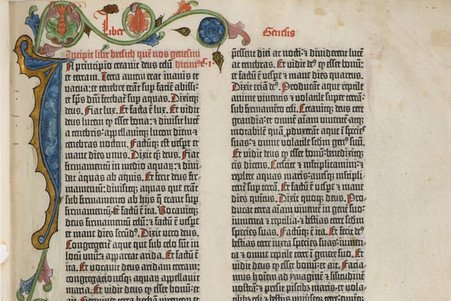 Liber
Genesis
Incipit liber bresith quē nos genesim
dicim⁹ C. I
In principio creavit deus celū
et terram. Terra autem erat inanis et
vacua: et tenebre erāt sup faciē abissi:
et sp̄s dñi ferebat̄ sup aquas. Dixitq;
deus. Fiat lux. Et facta ē lux. Et vidit
deus lucem q̄ esset bona: et divisit lucē
a tenebris: appellavitq; lucem diem et
tenebras noctem. Factūq; est vespe et
mane dies unus. Dixit q; deus. Fiat
firmamentū in medio aquarū: et divi-
dat aquas ab aquis. Et fecit deus fir-
mamentū: divisitq; aquas que erāt
sub firmamento ab hijs q̄ erant sup
firmamentū: et factū ē ita. Vocavitq;
deus firmamentū celū: et factū ē vespe
et mane dies secūd⁹. Dixit vero deus.
Congregent̄ aque que sub celo sūt in
locū unū et appareat arida. Et factū ē
ita. Et vocavit deus aridam terram:
congregacionesq; aquarū appellavit
maria. Et vidit deus q̄ esset bonū· et
ait. Germinet terra herbā virentem et
pessent diei ac nocti: et dividerent lucē
ac tenebras. Et vidit de⁹ q̄ esset bonū:
et factū ē vespe et mane dies quartus.
Dixit eciā de⁹. Producant aque reptile
anime viventis et volatile super terrā:
sub firmamēto celi. Creavitq; deus cete
grandia· et omnē aīam viventē atq;
motabilē quā pduxerāt aque ī species
suas: et omne volatile secdm gen⁹ suū.
Et vidit deus q̄ esset bonū: benedixitq;
eis dicens. Crescite et mltiplicamini· et
replete aquas maris: avesq; mltipli-
cent̄ sup terrā. Et factū ē vespe et mane
dies quintus. Dixit quoq; deus. Pro-
ducat terra aīam viventē in gene suo:
iumenta et reptilia· et bestias terre secdm
species suas. Factū ē ita. Et fecit de⁹
bestias terre iuxta species suas: iumen-
ta et omne reptile terre ī genere suo. Et
vidit deus q̄ esset bonū: et ait. Facia-
mus hoīem ad ymaginē et silitudinē
nostrā· et presit piscib⁹ maris· et vola-
tilib⁹ celi et bestijs universeq; terre: